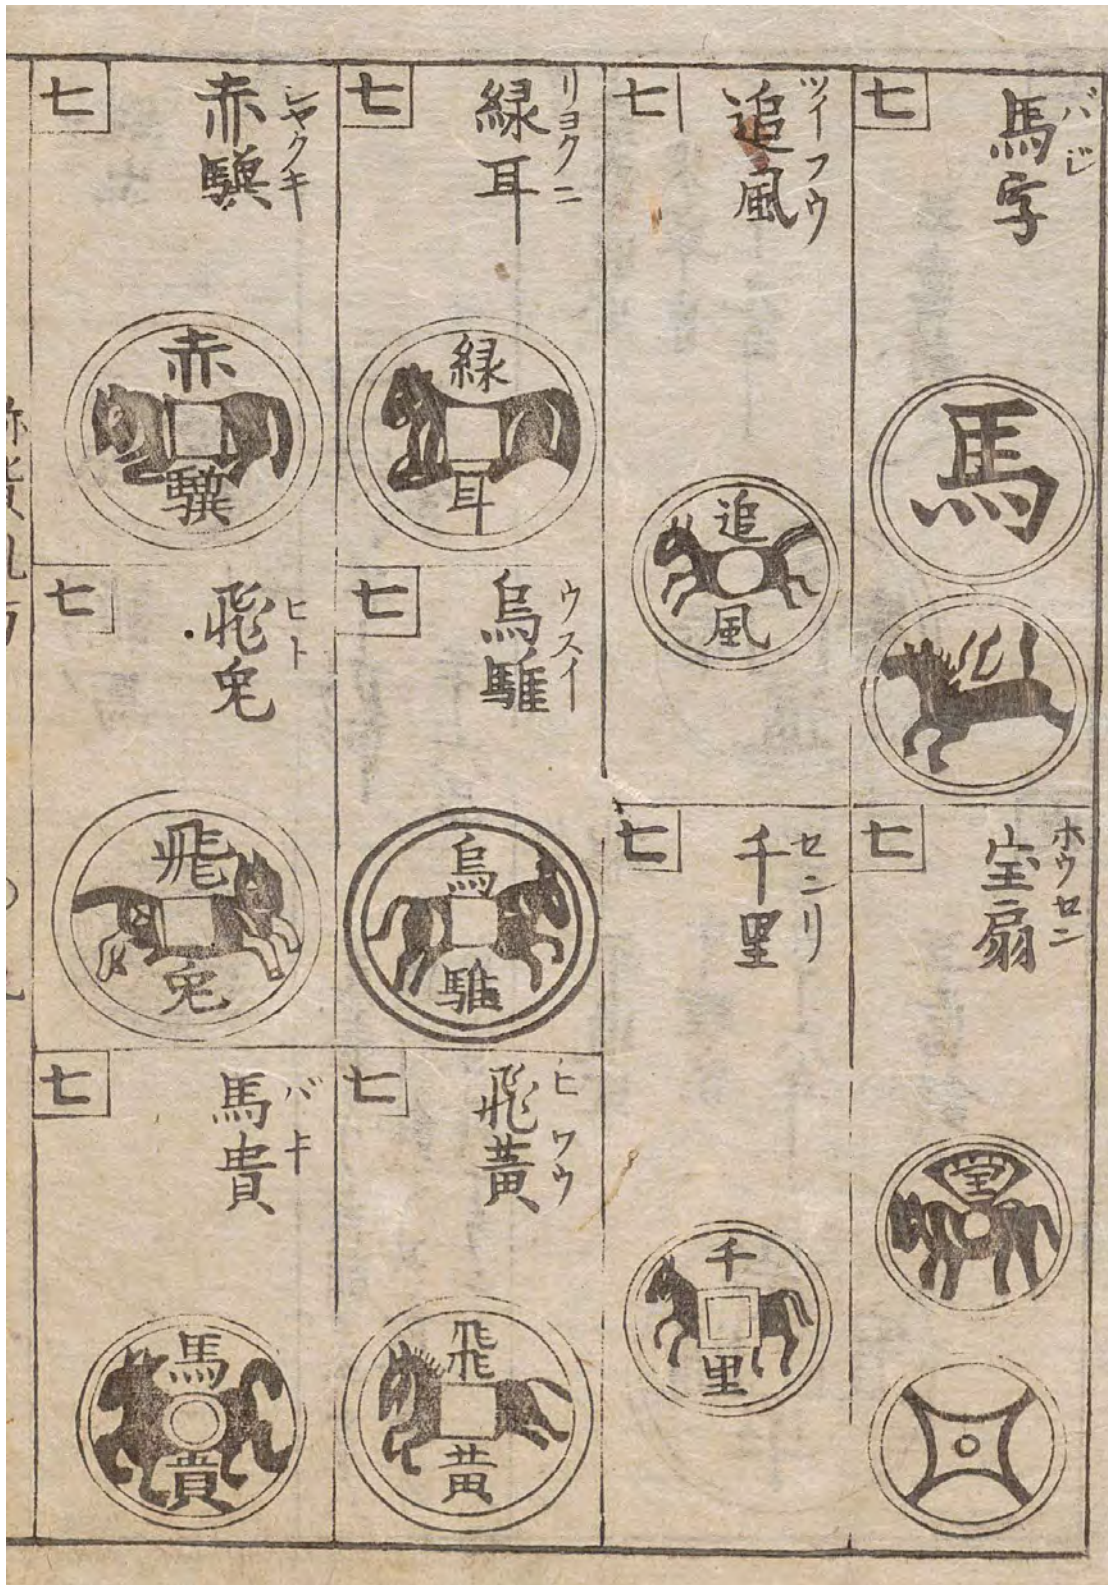 七
馬字
バジ
馬
七
宝扇
ホウセン
宝
七
追風
ツイフウ
追
風
七
千里
センリ
千
里
七
緑耳
リヨクニ
緑
耳
七
烏騅
ウスイ
烏
騅
七
飛黄
ヒワウ
飛
黄
七
赤驥
シヤクキ
赤
驥
七
飛兎
ヒト
飛
兎
七
馬貴
バキ
馬
貴